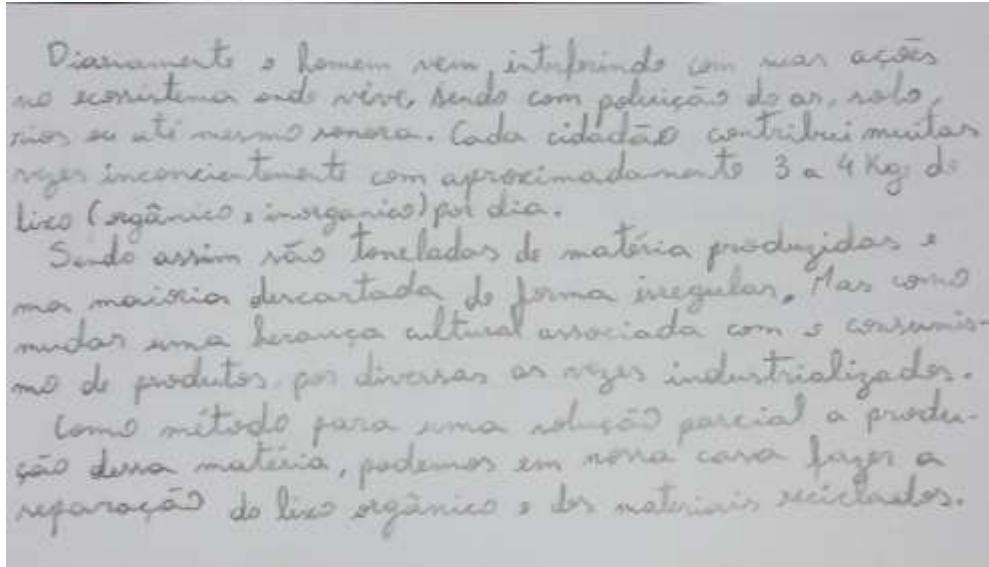 Diariamente o homem vem interferindo com suas ações
no ecossistema onde vive, sendo com poluição do ar, solo,
rios ou até mesmo sonora. Cada cidadão contribui muitas
vezes inconcientemente com aproximadamente 3 a 4 Kg. de
lixo (orgânico e inorganico) por dia.
Sendo assim são toneladas de matéria produzidas e
ma maioria descartada de forma irregular. Mas como
mudar uma herança cultural associada com o consumis-
mo de produtos por diversas as vezes industrializados.
Como método para uma solução parcial a produ-
ção dessa matéria, podemos em nossa casa fazer a
separação do lixo orgânico e dos materiais reciclados.